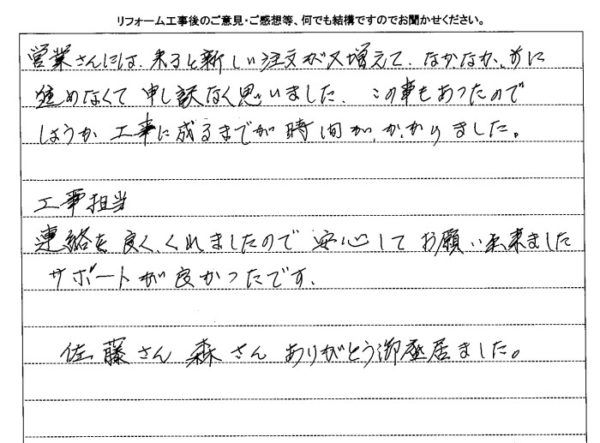 リフォーム工事後のご意見・ご感想等、何でも結構ですのでお聞かせください。
営業さんには、来ると新しい注文が又増えて、なかなか、前に
進めなくて申し訳なく思いました。この事もあったので
しょうか工事に成るまでが時間が、かかりました。
工事担当
連絡を良く、くれましたので安心してお願い出来ました
サポートが良かったです。
佐藤さん 森さん ありがとう御座居ました。